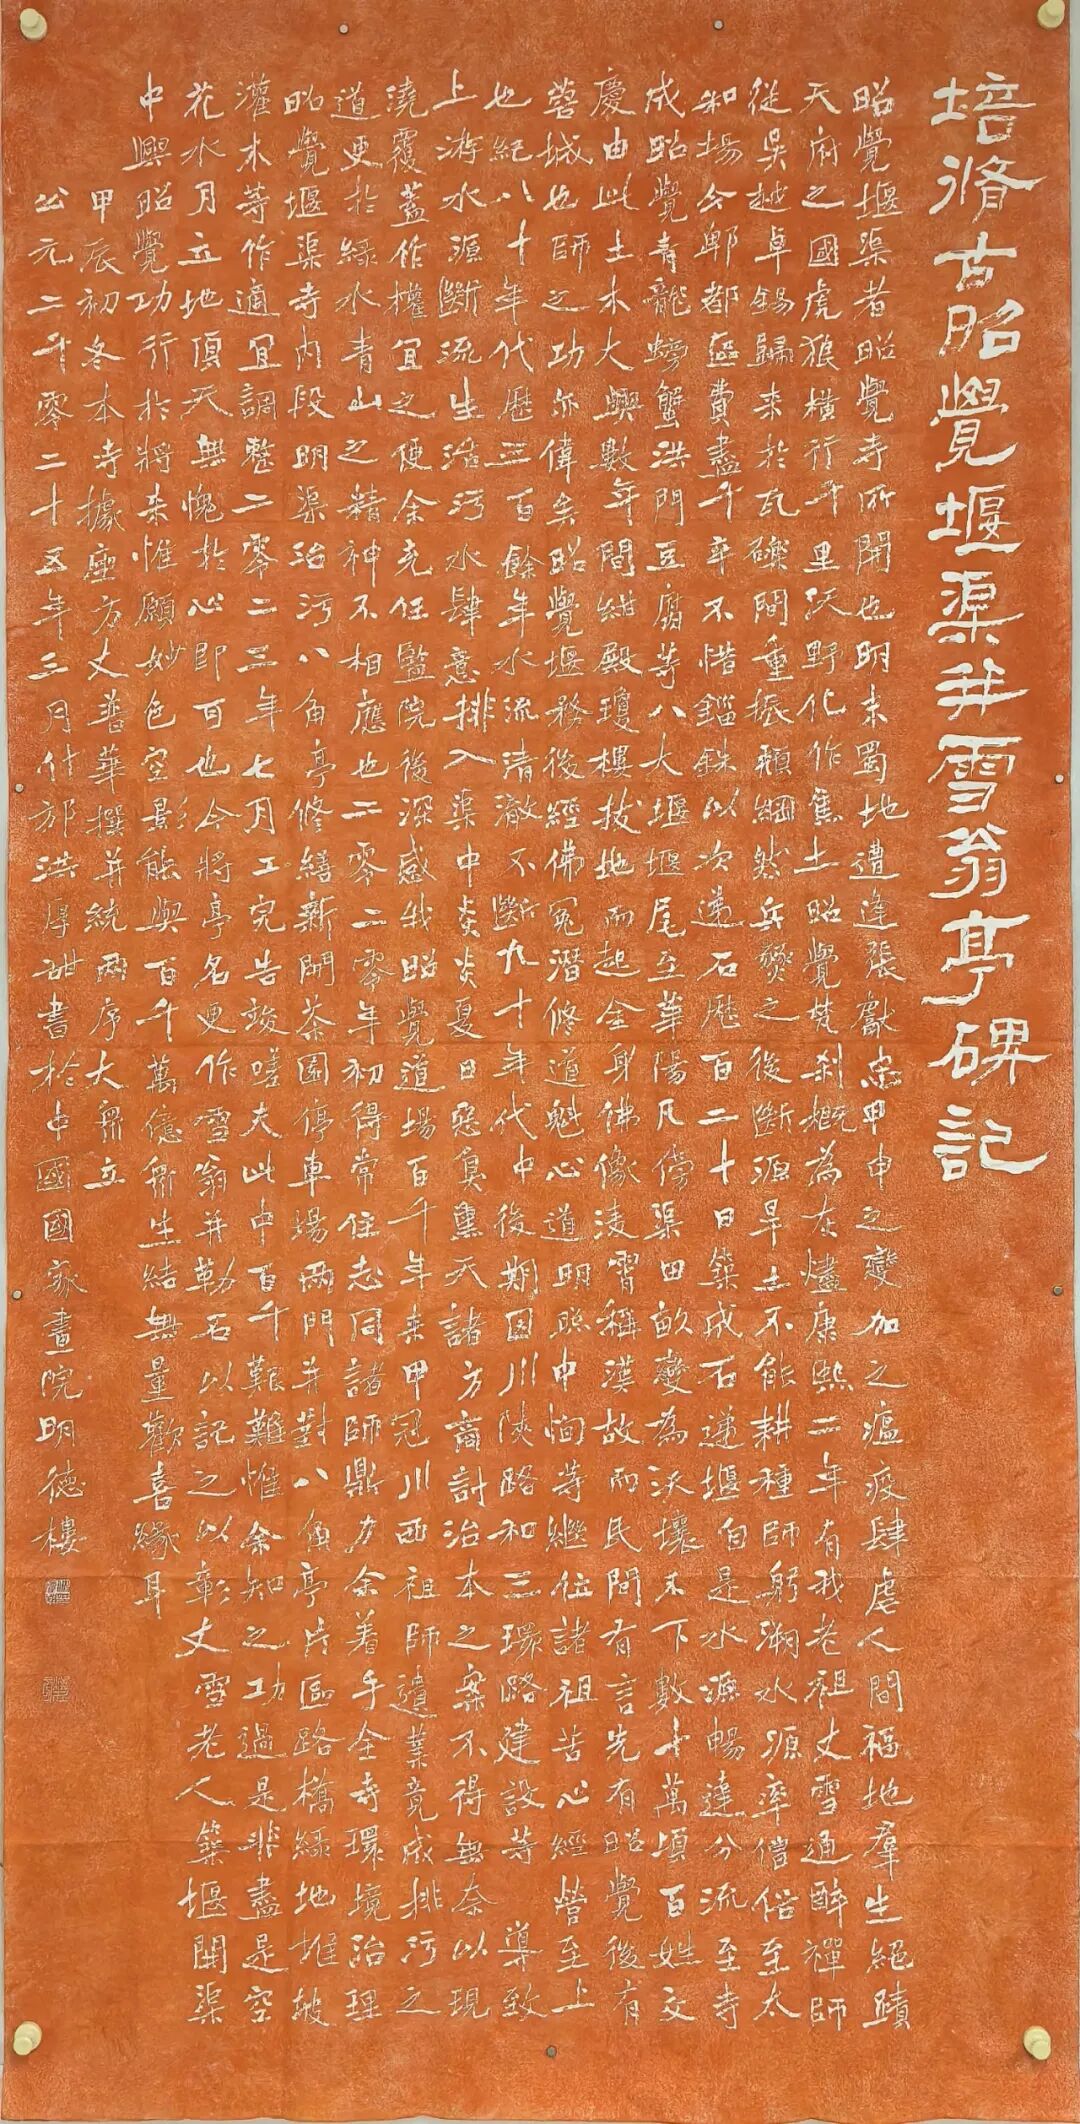 培脩古昭覺堰渠并雪翁亭碑記
昭覺堰渠者昭覺寺所開也明末蜀地遭逢張獻忠甲申之變加之瘟疫肆虐人間福地羣生絕蹟
天府之國虎狼橫行千里沃野化作焦土昭覺梵刹概為灰燼康熙二年有我老祖丈雪通醉禪師
從吳越卓錫歸來於瓦礫間重振頹綱然兵燹之後斷源旱土不能耕種師躬溯水源率僧俗至太
和場今郫都區費盡千辛不惜錙銖以次遞石歷百二十日築成石遞堰自是水源暢達分流至寺
成昭覺青龍螃蟹洪門豆腐等八大堰堰尾至華陽凡傍渠田畝變為沃壤不下數十萬頃百姓交
慶由此土木大興數年間紺殿瓊樓拔地而起全身佛像淩霄稱漢故而民間有言先有昭覺後有
蓉城也師之功亦偉矣昭覺堰務後經佛冤潛修道魁心道明照中恂等繼位諸祖苦心經營至上
也紀八十年代歷三百餘年水流清澈不斷九十年代中後期因川陝路和三環路建設等導致
上游水源斷流生活污水肆意排入渠中炎炎夏日惡臭熏天諸方商討治本之案不得無奈以現
澆覆蓋作權宜之便余充任監院後深感我昭覺道場百千年來甲冠川西祖師遺業竟成排污之
道更於綠水青山之精神不相應也二零二零年初得常住志同諸師鼎力余着手全寺環境治理
昭覺堰渠寺內段明渠治污八角亭修繕新開茶園停車場兩門并對八角亭片區路橋綠地堆坡
灌木等作適宜調整二零二三年七月工完告竣嗟夫此中百千艱難惟余知之功過是非盡是空
花水月立地頂天無愧於心即可也今將亭名更作雪翁并勒石以記之以彰丈雪老人築堰開渠
中興昭覺功行於將來惟願妙色空影能與百千萬億衆生結無量歡喜緣耳
甲辰初冬本寺據座方丈普華撰并統兩序大衆立
公元二千零二十五年三月什邡洪厚甜書於中國國家畫院明德樓